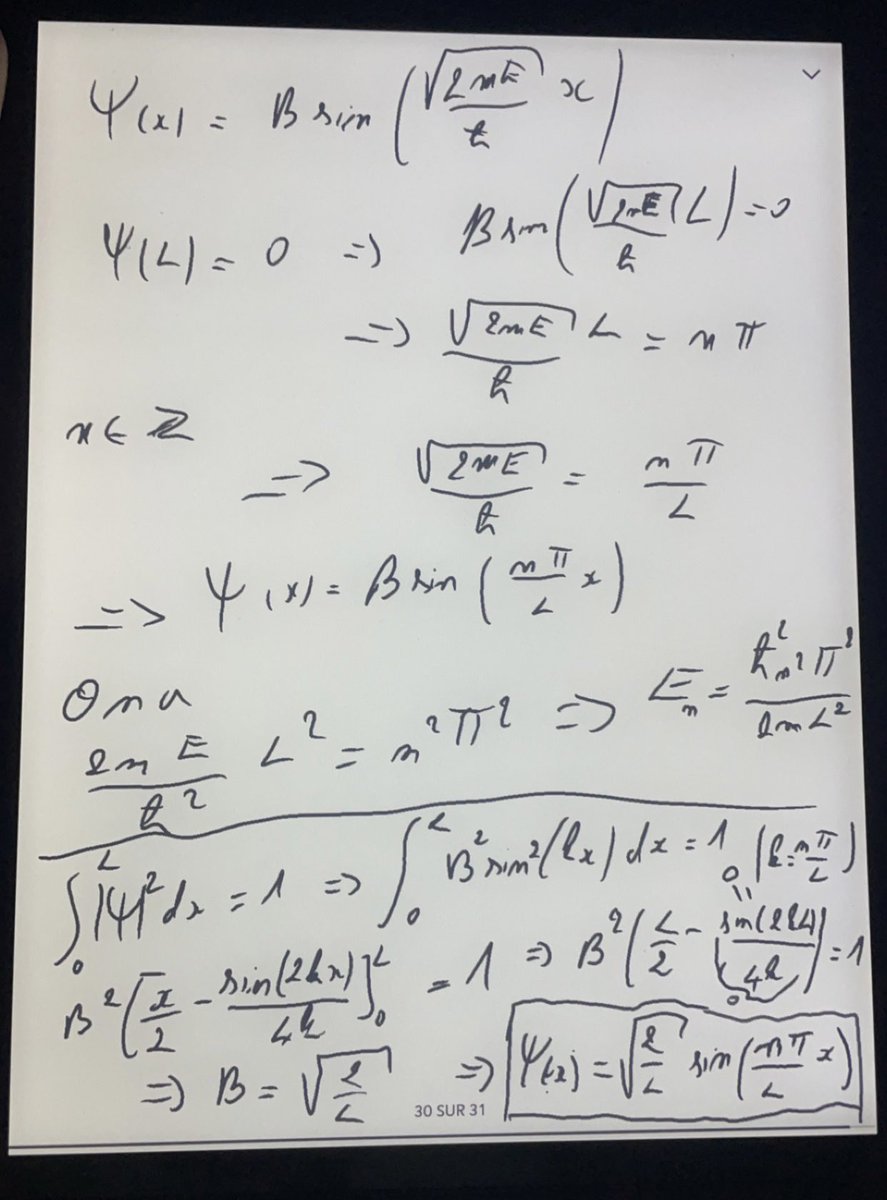 Ψ(x) = B sin (√(2mE)/ħ x)
Ψ(L) = 0 => B sin (√(2mE)/ħ L) = 0
=> √(2mE)/ħ L = nπ
n ∈ ℤ
=> √(2mE)/ħ = nπ/L
=> Ψ(x) = B sin (nπ/L x)
On a
2mE/ħ² L² = n²π² => Eₙ = ħ²n²π²/2mL²
∫₀ᴸ |Ψ|² dx = 1 => ∫₀ᴸ B² sin²(kx) dx = 1 (k = nπ/L)
B² [x/2 - sin(2kx)/4k]₀ᴸ = 1 => B² (L/2 - sin(2kL)/4k) = 1
0
=> B = √(2/L) => Ψ(x) = √(2/L) sin (nπ/L x)
30 SUR 31